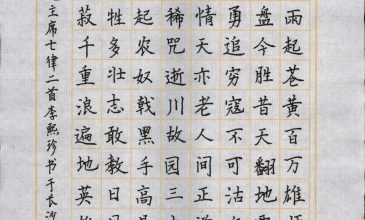 雨起苍黄百万雄
盘今胜昔天翻地
勇追穷寇不可沽
情天亦老人间正
稀咒逝川故园三
起农奴戟黑手高
牲多壮志敢教日
菽千重浪遍地英
主席七律二首李熙珍书于长沙